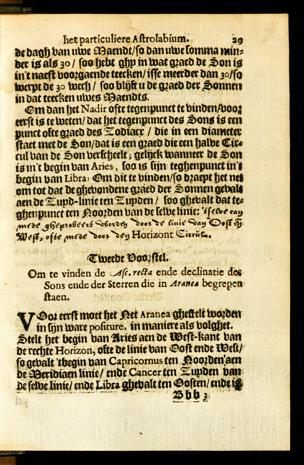 het particuliere Astrolabium. 29
de dagh van uwe Maendt/so dan uwe somma min-
der is als 30/ soo hebt ghy in wat graed de Son is
in't naest voorgaende teecken/ isse meerder dan 30/so
werpt de 30 wech / soo blijft u de graed der Sonnen
in dat teecken uwes Maendts.
Om dan het Nadir ofte tegenpunct te vinden/voor
eerst is te weten/ dat het tegenpunct des Sons is een
punct ofte graed des Zodiacx / die in een diameter
staet met de Son/dat is een graed die een halve Cir-
cul van de Son verscheelt; gelijck wanneer de Son
is in't begin van Aries, soo is sijn teghenpunct in't
begin van Libra. Om dit te vinden/so draept het net
om tot dat de ghevondene graed der Sonnen gevalt
aen de Zuyd-linie ten Zuyden/ soo ghevalt dat te-
ghenpunct ten Noorden van de selve linie: 't selve can
mede gheprobeert worden door de linie van Oost en
West, ofte mede door den Horizont Circul.
Tweede Voorstel.
Om te vinden de Asc. recta ende declinatie des
Sons ende der Sterren die in Aranea begrepen
staen.
VOor eerst moet het Net Aranea ghestelt worden
in sijn ware positure, in maniere als volghet.
Stelt het begin van Aries aen de West-kant van
de rechte Horizon, ofte de linie van Oost ende West/
so gevalt 'tbegin van Capricornus ten Noorden aen
de Meridiaen linie/ ende Cancer ten Zuyden van
de selve linie/ ende Libra ghevalt ten Oosten/ ende is
Bbb 3